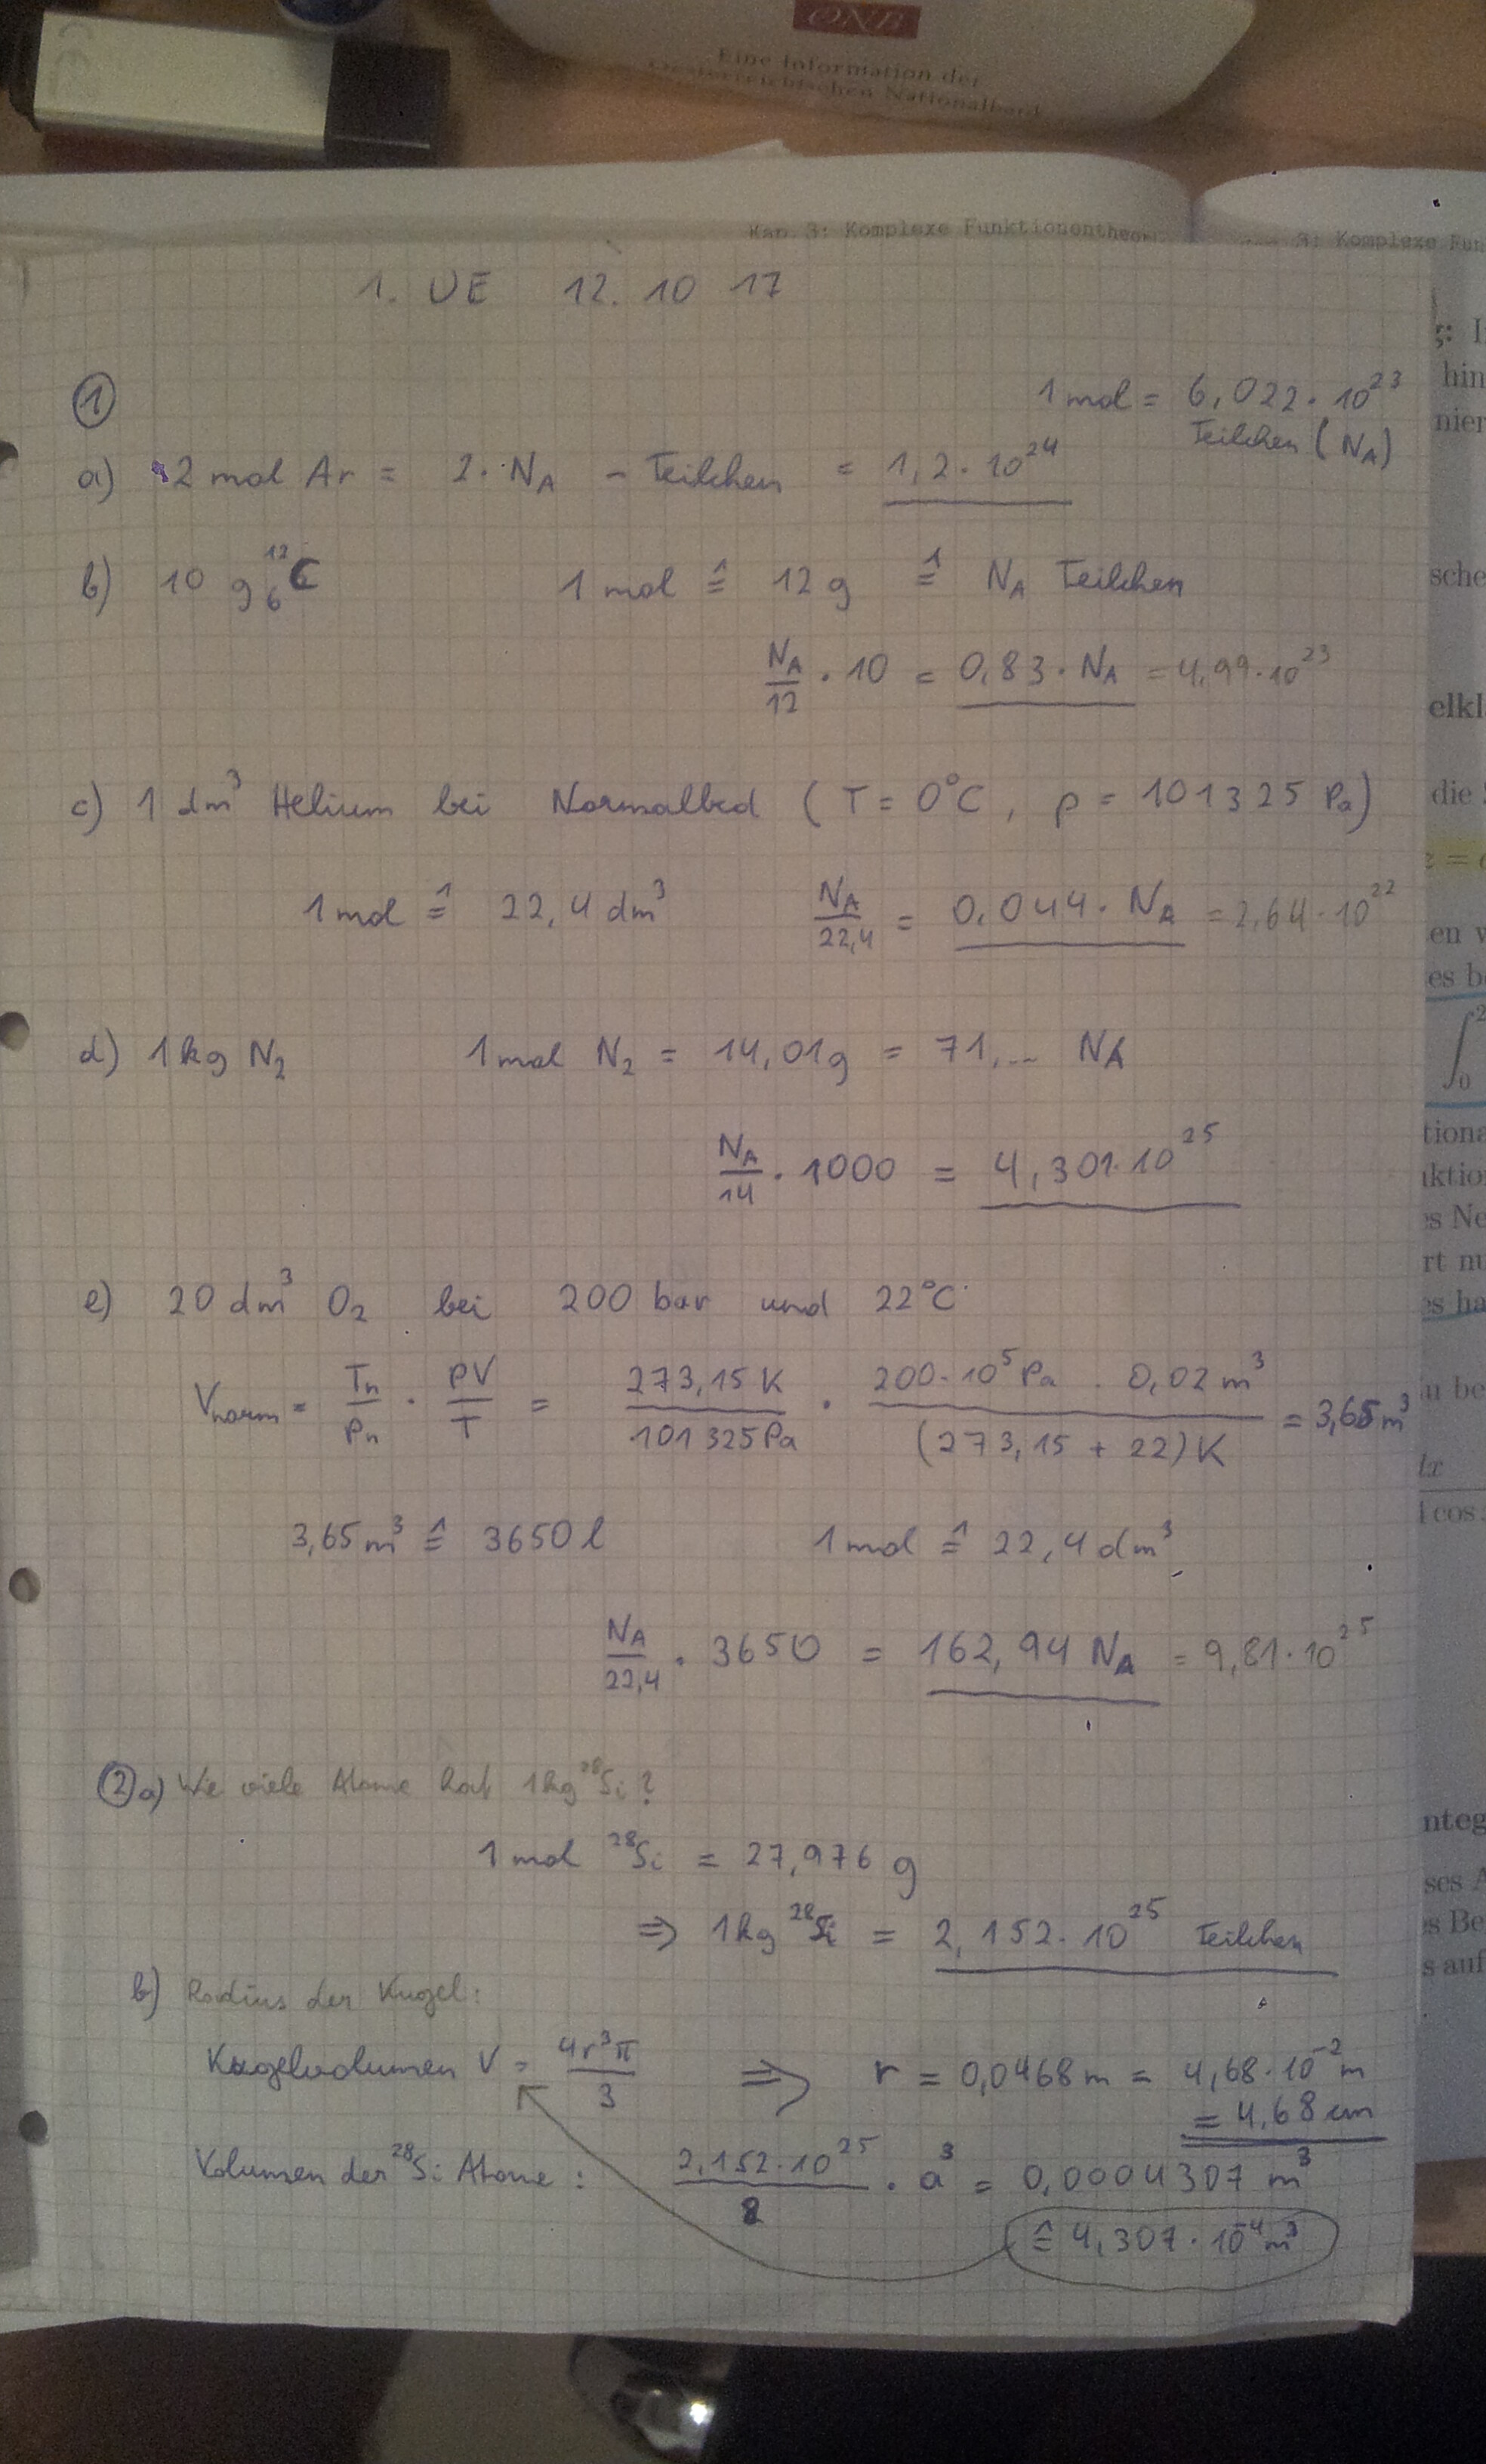 ÖNB
Eine Information der
Oesterreichischen Nationalbank
Kap. 3: Komplexe Funktionentheorie
3: Komplexe Fun
1. UE 12. 10 17
1 mol = 6,022 · 10²³
Teilchen (N_A)
①
a) 2 mol Ar = 2 · N_A – Teilchen = 1,2 · 10²⁴
b) 10 g ¹²₆C 1 mol ≙ 12 g ≙ N_A Teilchen
N_A/12 · 10 = 0,83 · N_A = 4,99 · 10²³
c) 1 dm³ Helium bei Normalbed (T = 0°C, p = 101325 Pa)
1 mol ≙ 22,4 dm³ N_A/22,4 = 0,044 · N_A = 2,64 · 10²²
d) 1 kg N₂ 1 mol N₂ = 14,01 g = 71,... N_A
N_A/14 · 1000 = 4,301 · 10²⁵
e) 20 dm³ O₂ bei 200 bar und 22°C
V_norm = T_n/p_n · pV/T = 273,15 K/101325 Pa · 200 · 10⁵ Pa · 0,02 m³/(273,15 + 22) K = 3,65 m³
3,65 m³ ≙ 3650 l 1 mol ≙ 22,4 dm³
N_A/22,4 · 3650 = 162,94 N_A = 9,81 · 10²⁵
② a) Wie viele Atome hat 1 kg ²⁸Si?
1 mol ²⁸Si = 27,976 g
⇒ 1 kg ²⁸Si = 2,152 · 10²⁵ Teilchen
b) Radius der Kugel:
Kugelvolumen V = 4r³π/3 ⇒ r = 0,0468 m = 4,68 · 10⁻² m
= 4,68 cm
Volumen der ²⁸Si Atome: 2,152 · 10²⁵/8 · a³ = 0,0004307 m³
≙ 4,307 · 10⁻⁴ m³
hin
nier
sche
elkl
die
en v
es b
tiona
nktion
es Ne
rt nu
es ha
u be
dx
cos
nteg
ses A
s Be
s auf